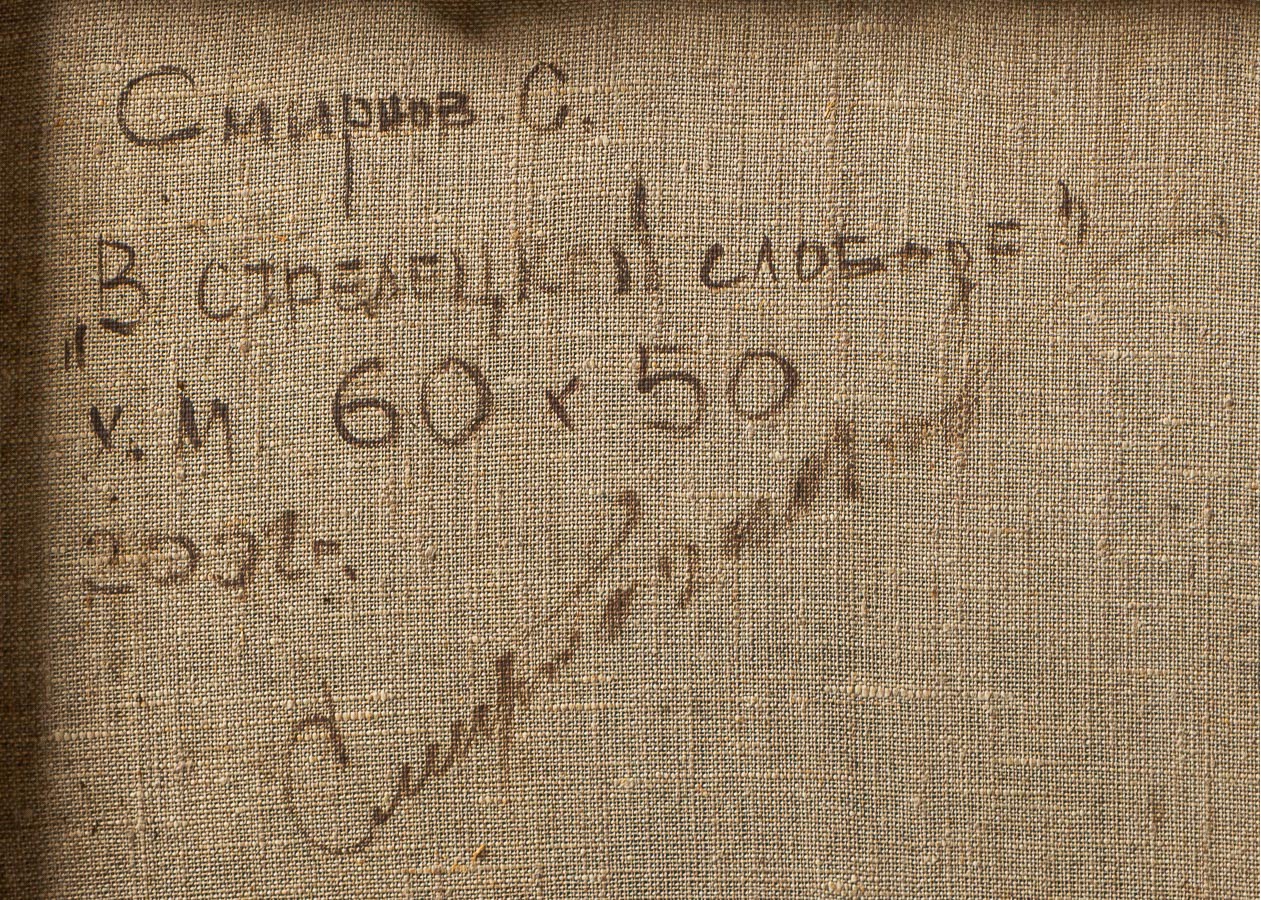 Смирнов. С.
„В стрелецкой слободе"
х. м 60 х 50